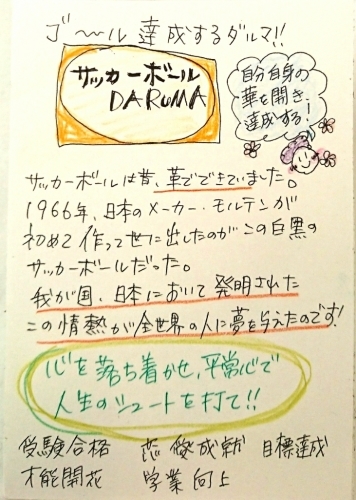 ゴ〜ル達成するダルマ!!
サッカーボール
DARUMA
自分自身の
華を開き、
達成する!
サッカーボールは昔、革でできていました。
1966年、日本のメーカー・モルテンが
初めて作って世に出したのがこの白黒の
サッカーボールだった。
我が国、日本において発明された
この情熱が全世界の人に夢を与えたのです!
心を落ち着かせ、平常心で
人生のシュートを打て!!
受験合格 成就 目標達成
才能開花 学業向上